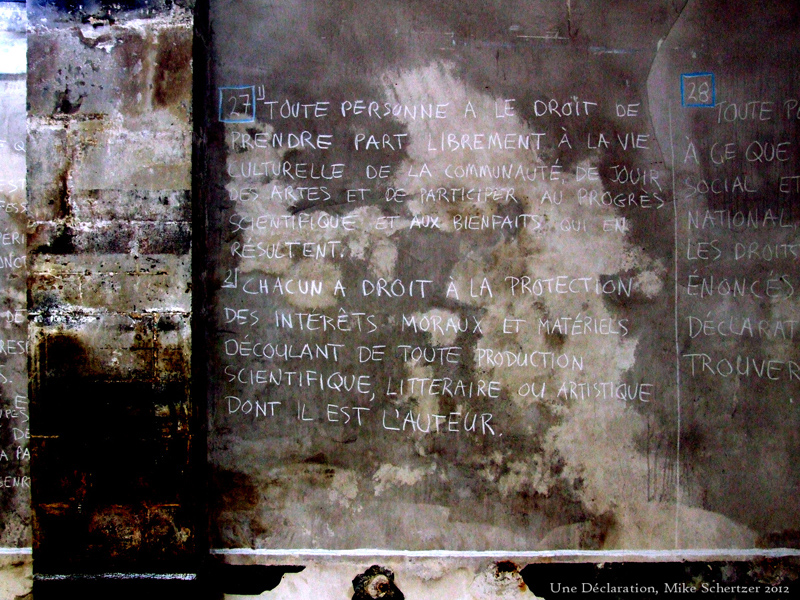 27
1) TOUTE PERSONNE A LE DROIT DE
PRENDRE PART LIBREMENT À LA VIE
CULTURELLE DE LA COMMUNAUTÉ, DE JOUIR
DES ARTES ET DE PARTICIPER AU PROGRÈS
SCIENTIFIQUE ET AUX BIENFAITS QUI EN
RÉSULTENT.
2) CHACUN A DROIT À LA PROTECTION
DES INTÉRÊTS MORAUX ET MATÉRIELS
DÉCOULANT DE TOUTE PRODUCTION
SCIENTIFIQUE, LITTÉRAIRE OU ARTISTIQUE
DONT IL EST L'AUTEUR.
28
TOUTE
À CE QUE
SOCIAL ET
NATIONAL,
LES DROITS
ÉNONCÉS
DÉCLARAT
TROUVER
Une Déclaration, Mike Schertzer 2012